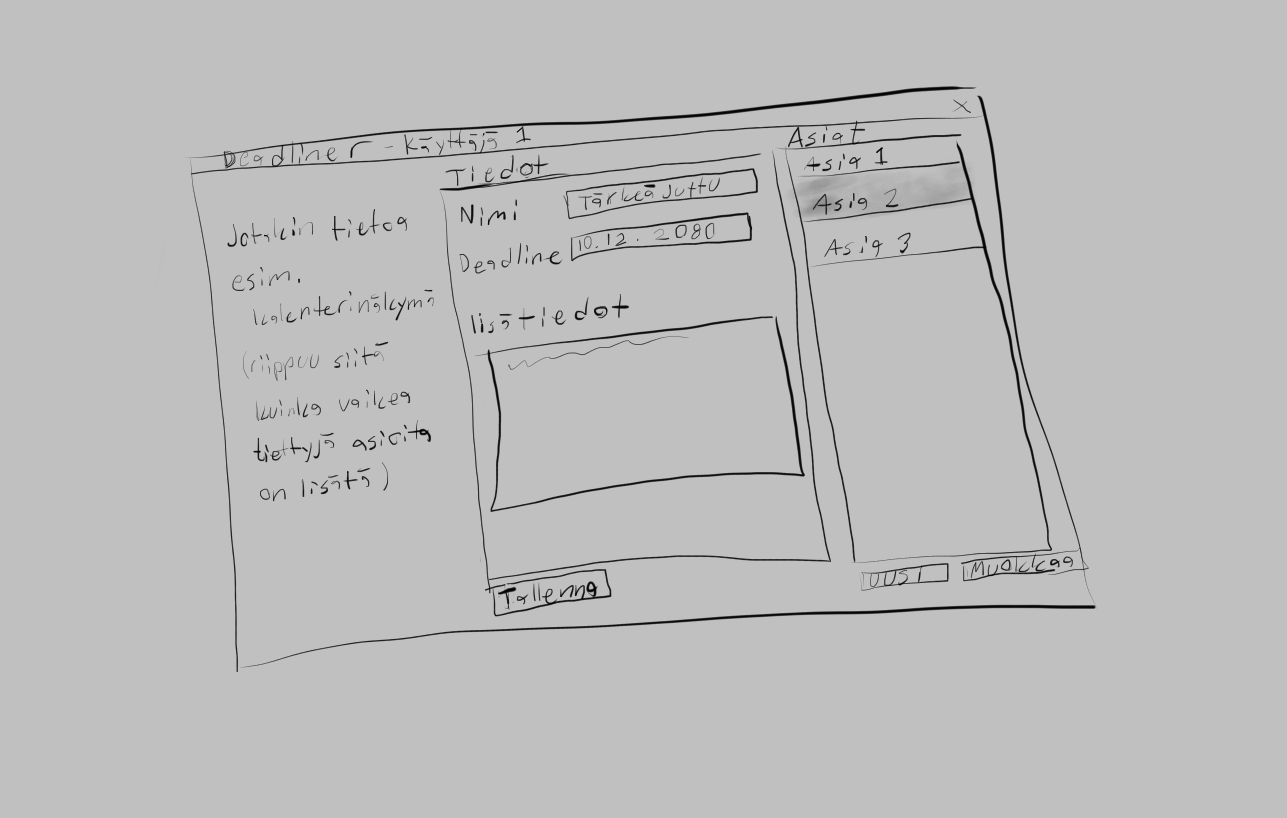 Deadliner - Käyttäjä 1
X
Jotakin tietoa
esim.
kalenterinäkymä
(riippuu siitä
kuinka vaikea
tiettyjä asioita
on lisätä)
Tiedot
Nimi
Tärkeä Juttu
Deadline
10.12.2080
lisätiedot
Tallenna
Asiat
Asia 1
Asia 2
Asia 3
UUSI
Muokkaa